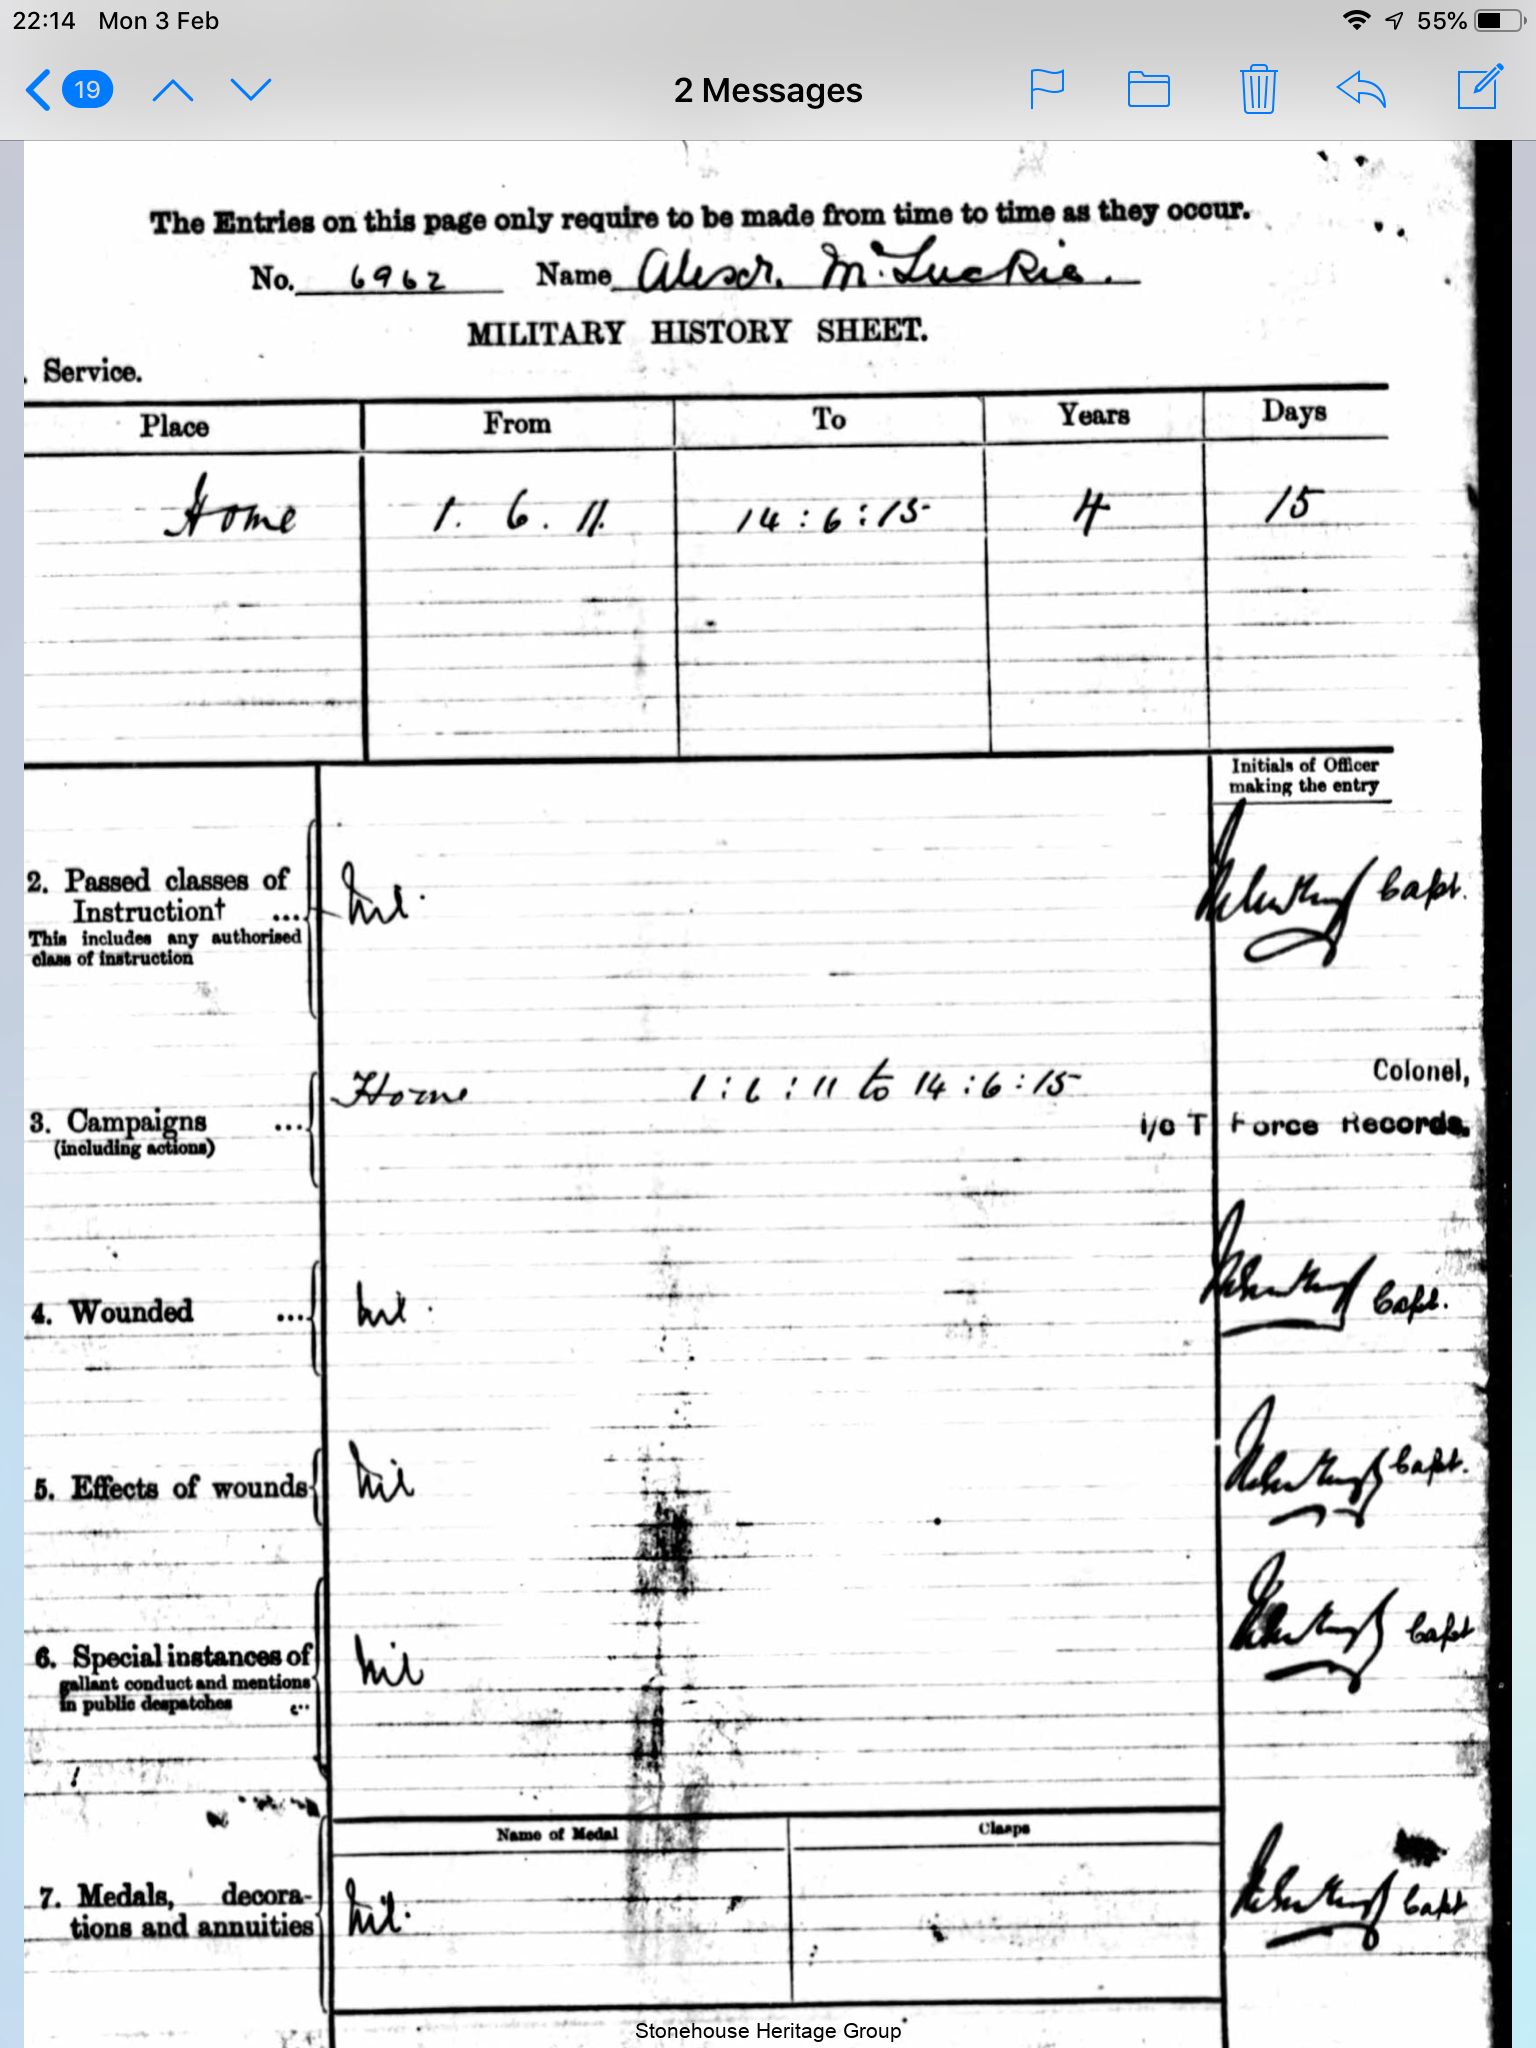 22:14 Mon 3 Feb 55%
19 2 Messages
The Entries on this page only require to be made from time to time as they occur.
No. 6962 Name Alexr. McLuckie.
MILITARY HISTORY SHEET.
. Service.
Place From To Years Days
Home 1. 6. 11. 14:6:15 4 15
Initials of Officer
making the entry
2. Passed classes of
Instruction† ...
This includes any authorised
class of instruction
Nil. Capt.
Colonel,
i/c T Force Records.
3. Campaigns ...
(including actions)
Home 1:6:11 to 14:6:15
4. Wounded ... Nil. Capt.
5. Effects of wounds Nil Capt.
6. Special instances of
gallant conduct and mentions
in public despatches ...
Nil Capt
Name of Medal Clasps
7. Medals, decora-
tions and annuities
Nil. Capt
Stonehouse Heritage Group